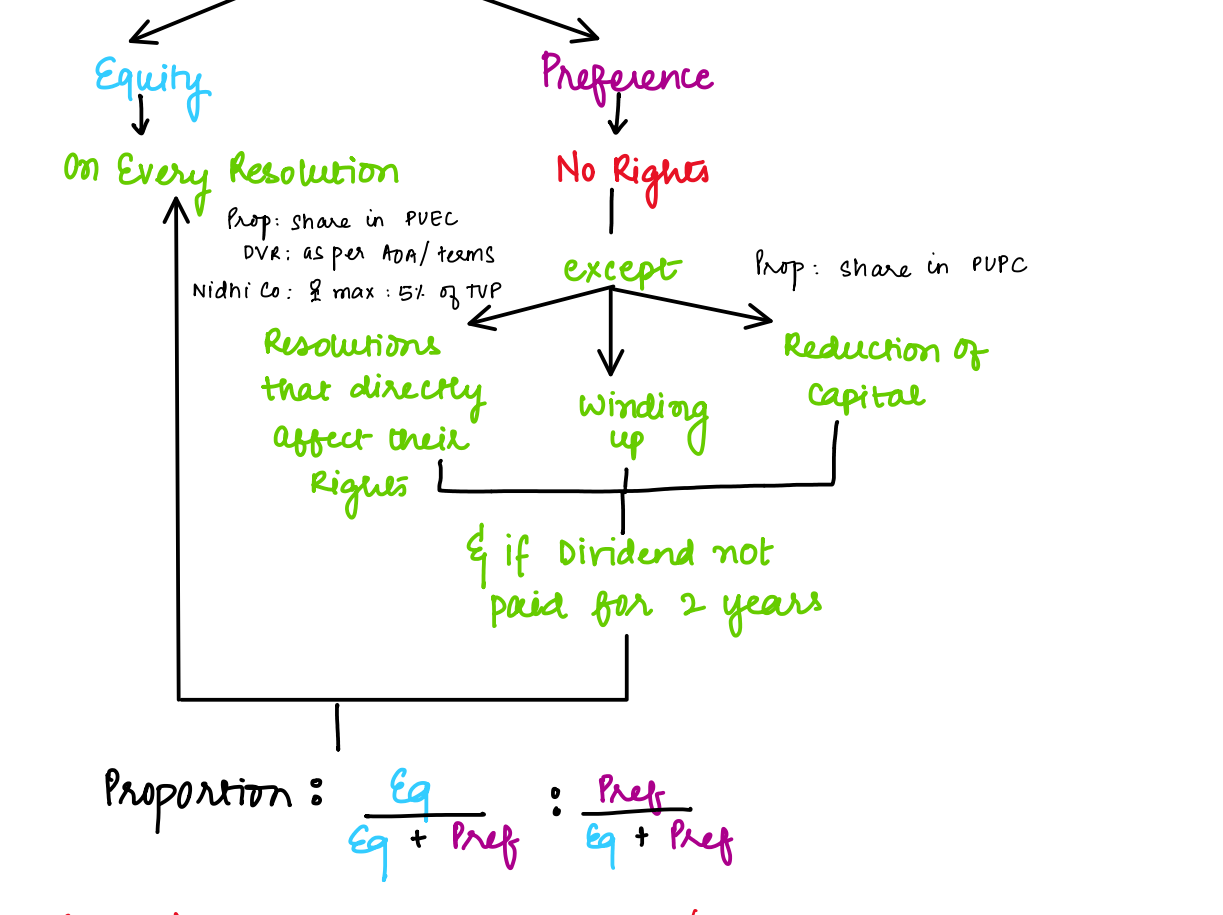 Equity
Preference
On Every Resolution
No Rights
Prop: share in PUEC
DVR: as per AOA/ terms
Nidhi Co: max: 5% of TVP
except
Prop: share in PUPC
Resolutions
that directly
affect their
Rights
Winding
up
Reduction of
Capital
& if Dividend not
paid for 2 years
Proportion: Eq : Pref
Eq + Pref Eq + Pref